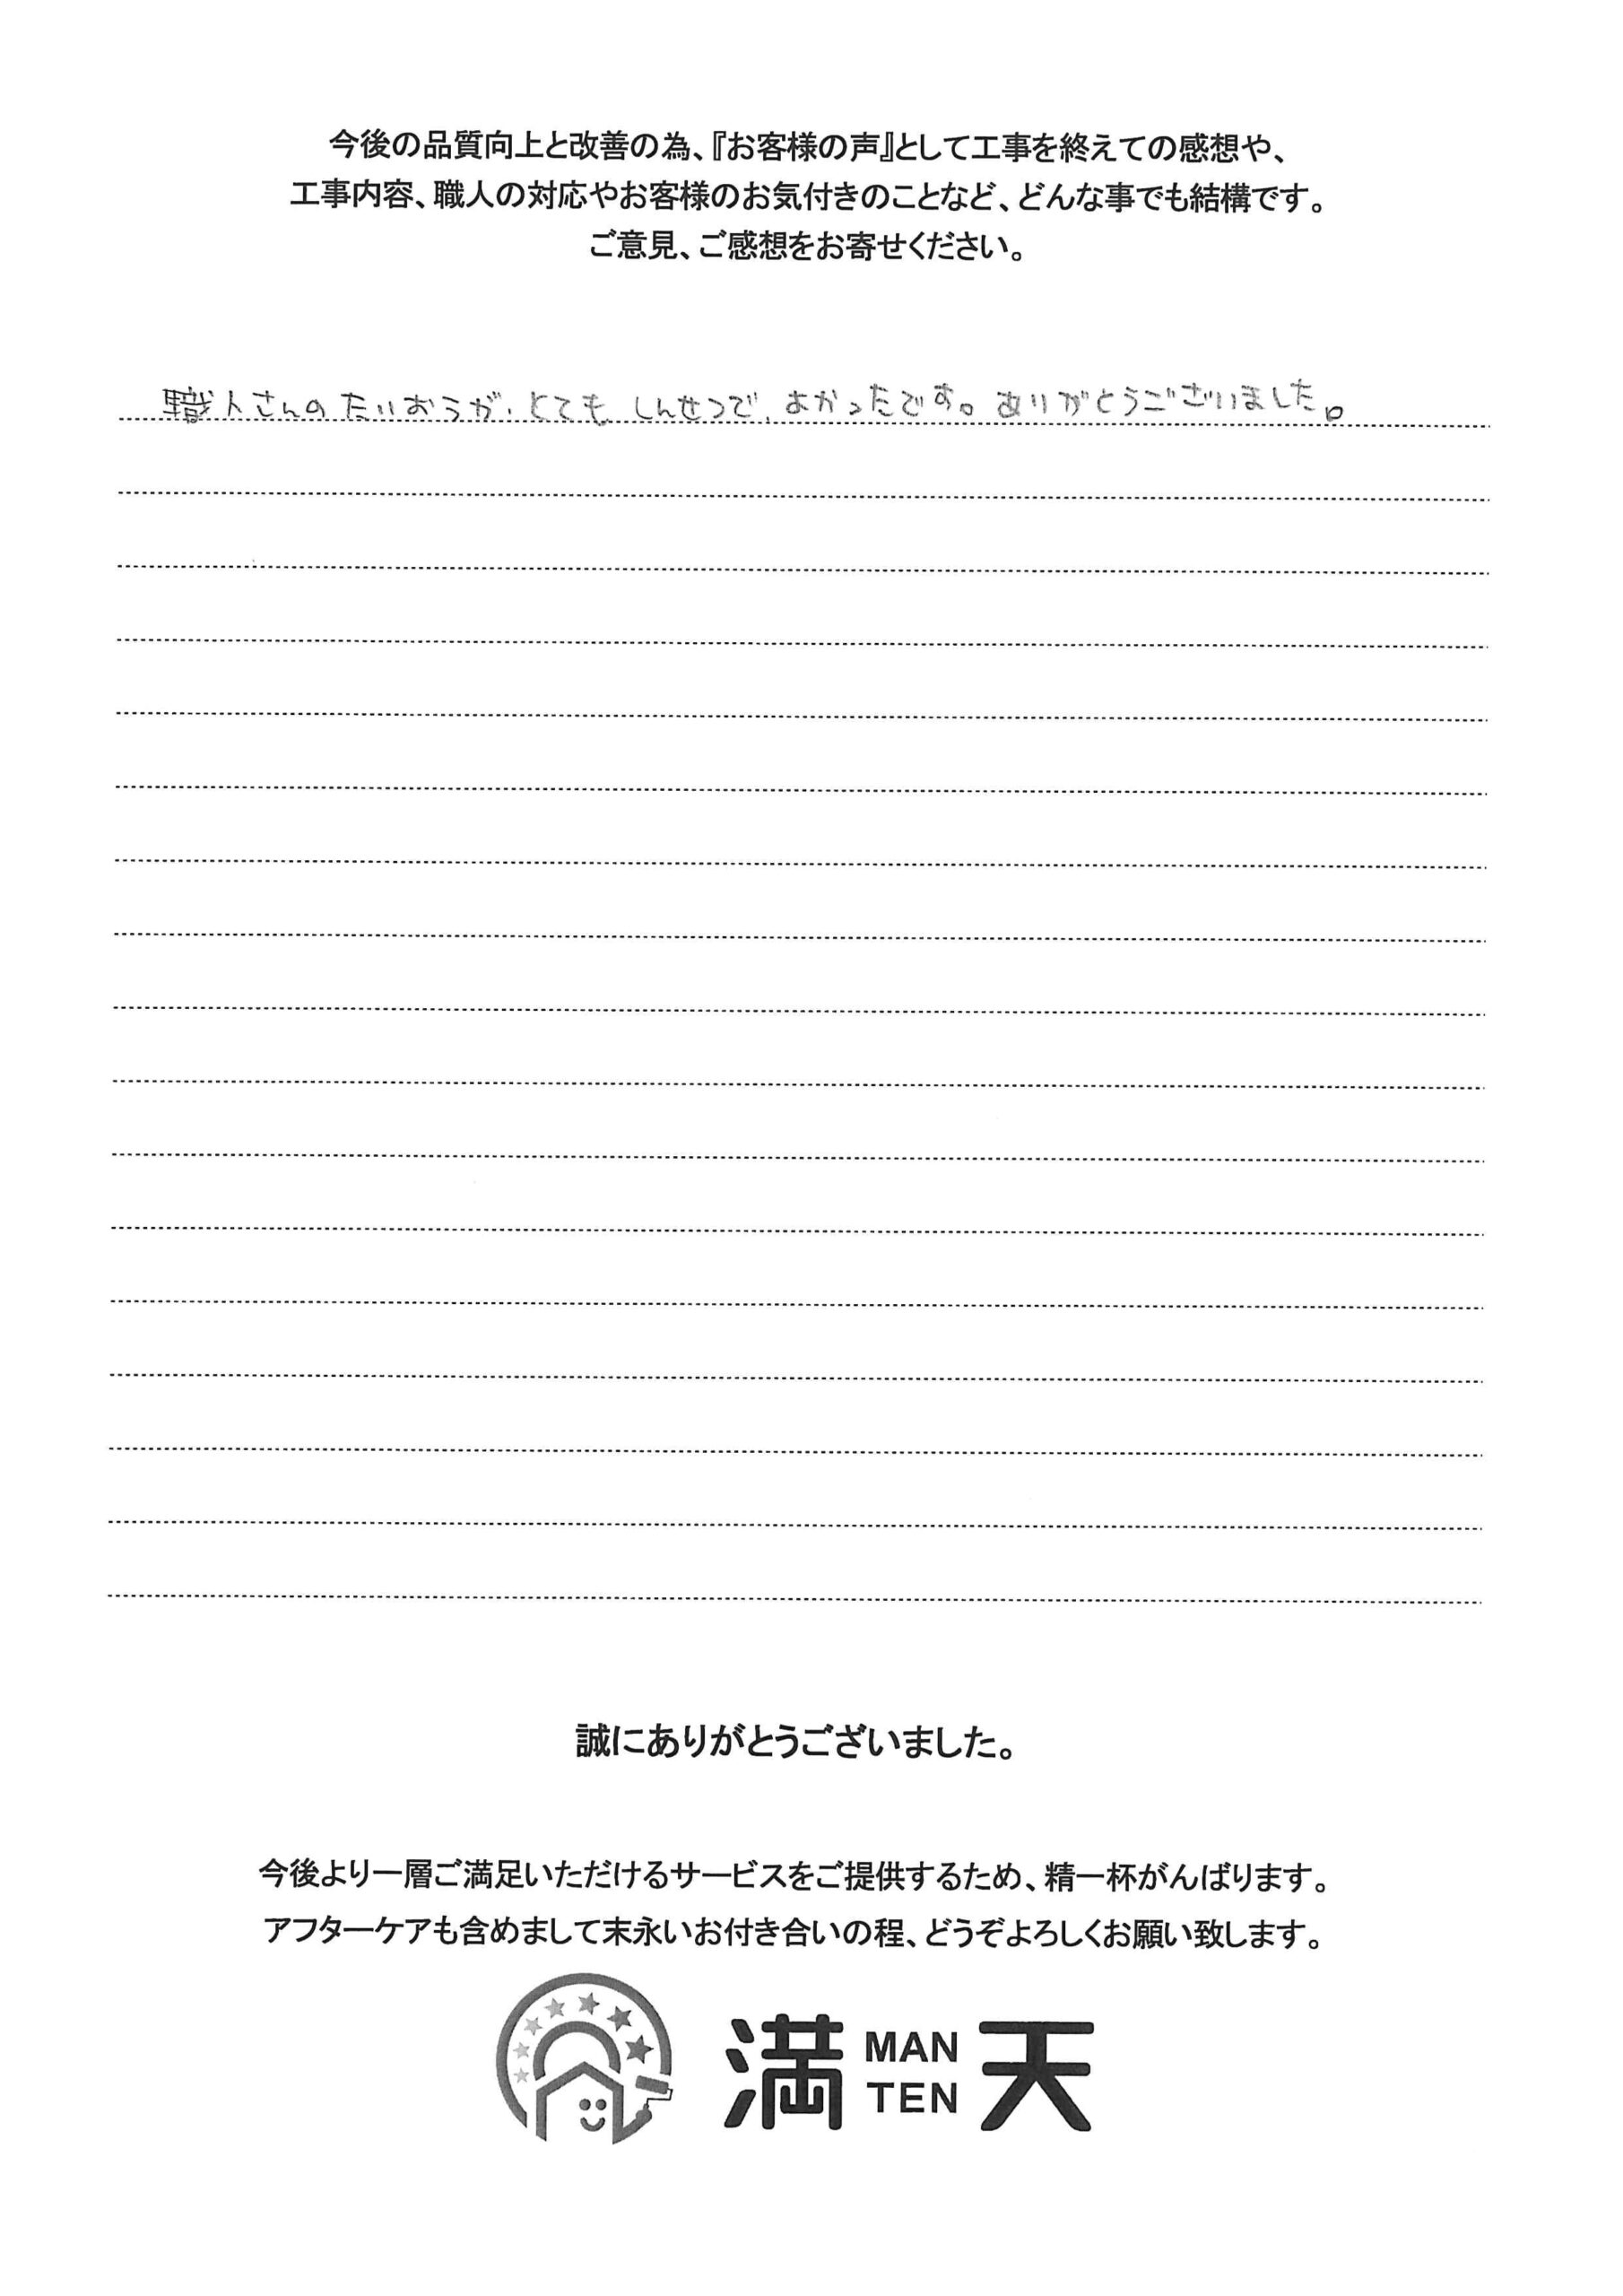 今後の品質向上と改善の為、『お客様の声』として工事を終えての感想や、
工事内容、職人の対応やお客様のお気付きのことなど、どんな事でも結構です。
ご意見、ご感想をお寄せください。
職人さんのたいおうが、とても、しんせつで、よかったです。ありがとうございました。
誠にありがとうございました。
今後より一層ご満足いただけるサービスをご提供するため、精一杯がんばります。
アフターケアも含めまして末永いお付き合いの程、どうぞよろしくお願い致します。
満 MAN TEN 天